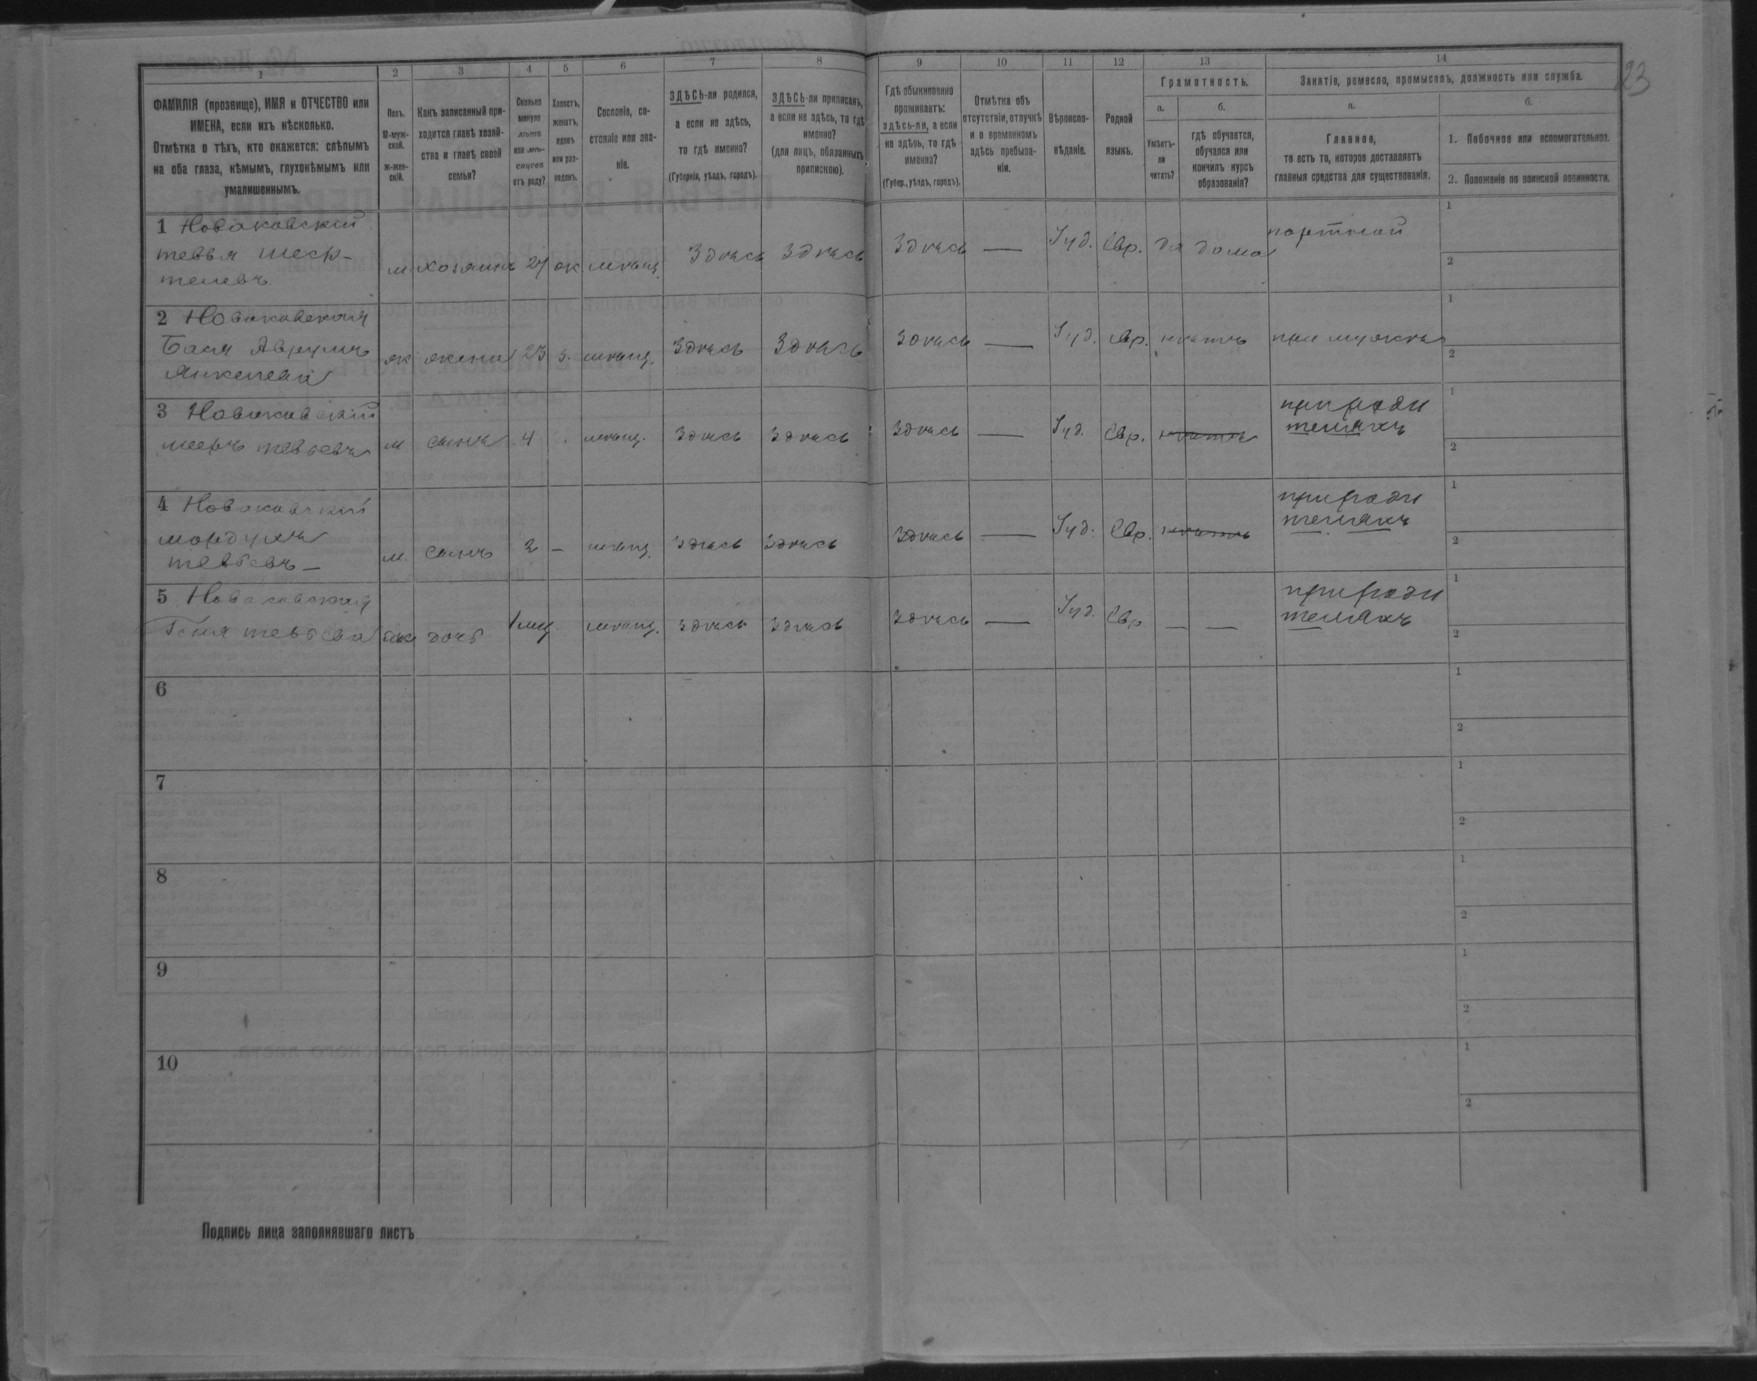 23
1 2 3 4 5 6 7 8 9 10 11 12 13 14
ФАМИЛІЯ (прозвище), ИМЯ и ОТЧЕСТВО или
ИМЕНА, если ихъ нѣсколько.
Отмѣтка о тѣхъ, кто окажется: слѣпымъ
на оба глаза, нѣмымъ, глухонѣмымъ или
умалишеннымъ.
Полъ.
М-муж-
ской.
ж-жен-
скій.
Какъ записанный при-
ходится главѣ хозяй-
ства и главѣ своей
семьи?
Сколько
минуло
лѣтъ
или мѣ-
сяцевъ
отъ роду?
Холостъ,
женатъ,
вдовъ
или раз-
веденъ.
Сословіе, со-
стояніе или зва-
ніе.
ЗДѢСЬ-ли родился,
а если не здѣсь,
то гдѣ именно?
(Губернія, уѣздъ, городъ).
ЗДѢСЬ-ли приписанъ,
а если не здѣсь, то гдѣ
именно?
(для лицъ, обязанныхъ
припискою).
Гдѣ обыкновенно
проживаетъ:
здѣсь-ли, а если
не здѣсь, то гдѣ
именно?
(Губер., уѣздъ, городъ).
Отмѣтка объ
отсутствіи, отлучкѣ
и о временномъ
здѣсь пребыва-
ніи.
Вѣроиспо-
вѣданіе.
Родной
языкъ.
Грамотность.
а. б.
Умѣетъ-
ли
читать?
гдѣ обучается,
обучался или
кончилъ курсъ
образованія?
Занятіе, ремесло, промыселъ, должность или служба.
а. б.
Главное,
то есть то, которое доставляетъ
главныя средства для существованія.
1. Побочное или вспомогательное.
2. Положеніе по воинской повинности.
1 Новаковскій
тевья
м хозяинъ 27 ж мѣщ. Здѣсь Здѣсь Здѣсь — Іуд. Евр. да дома портной 1
2
2 Новаковская
Бася
Янкелева
ж жена 23 з. мѣщ. Здѣсь Здѣсь Здѣсь — Іуд. Евр. нѣтъ при мужѣ 1
2
3 Новаковскій
мееръ тевьевъ м сынъ 4 мѣщ. Здѣсь Здѣсь Здѣсь — Іуд. Евр. нѣтъ при роди
теляхъ 1
2
4 Новаковскій
мордухъ
тевьевъ —
м. сынъ 2 — мѣщ. Здѣсь Здѣсь Здѣсь — Іуд. Евр. нѣтъ при роди
теляхъ 1
2
5 Новаковская
тевьева дочь 1 мѣщ. Здѣсь Здѣсь Здѣсь — Іуд. Евр. — — при роди
теляхъ 1
2
6 1
2
7 1
2
8 1
2
9 1
2
10 1
2
Подпись лица заполнявшаго листъ